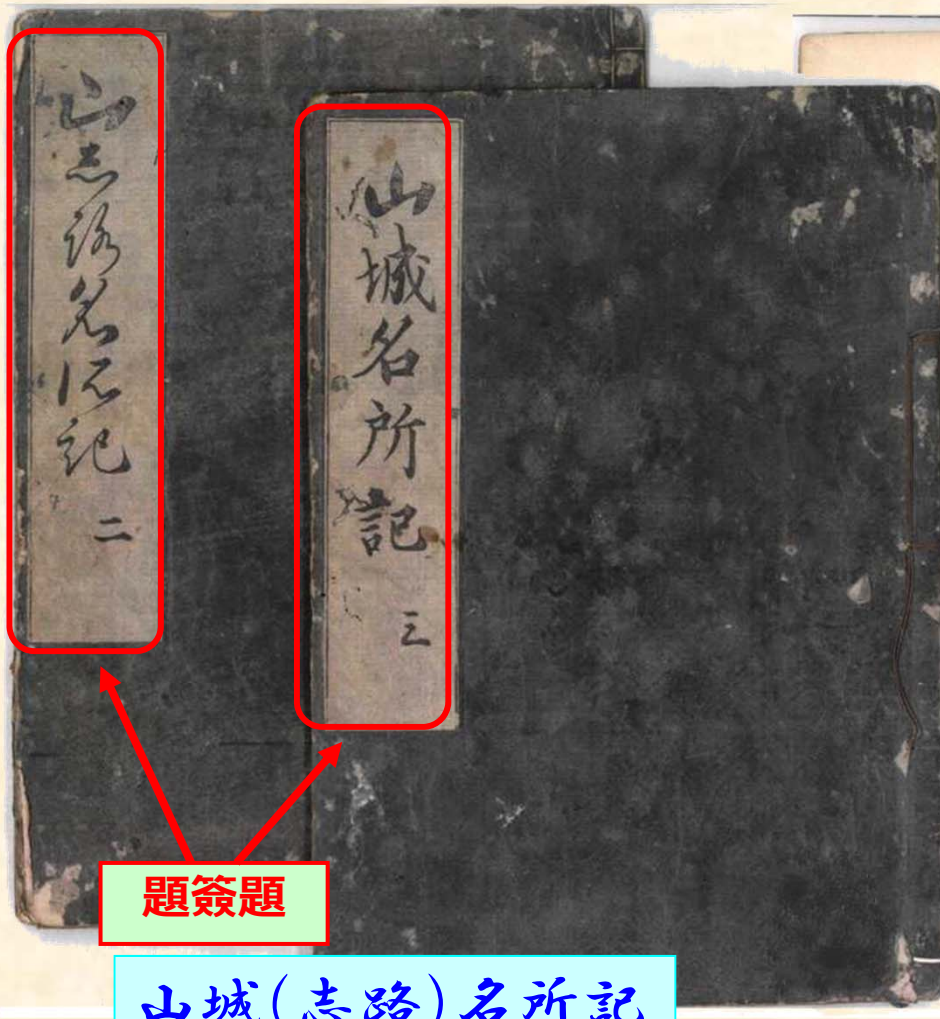 山志路名所記
二
山城名所記
三
題簽題
山城(志路)名所記